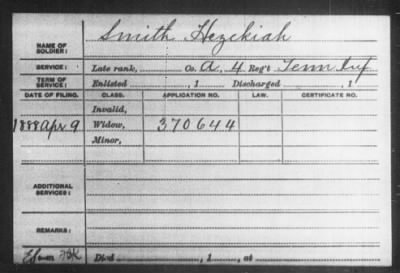 NAME OF SOLDIER: Smith Hezekiah
SERVICE: Late rank, Co. A, 4 Reg't Tenn Inf
TERM OF SERVICE: Enlisted , 1 Discharged , 1
DATE OF FILING. CLASS. APPLICATION NO. LAW. CERTIFICATE NO.
Invalid,
1888 Apr 9 Widow, 370644
Minor,
ADDITIONAL SERVICES:
REMARKS:
Died , 1 , at